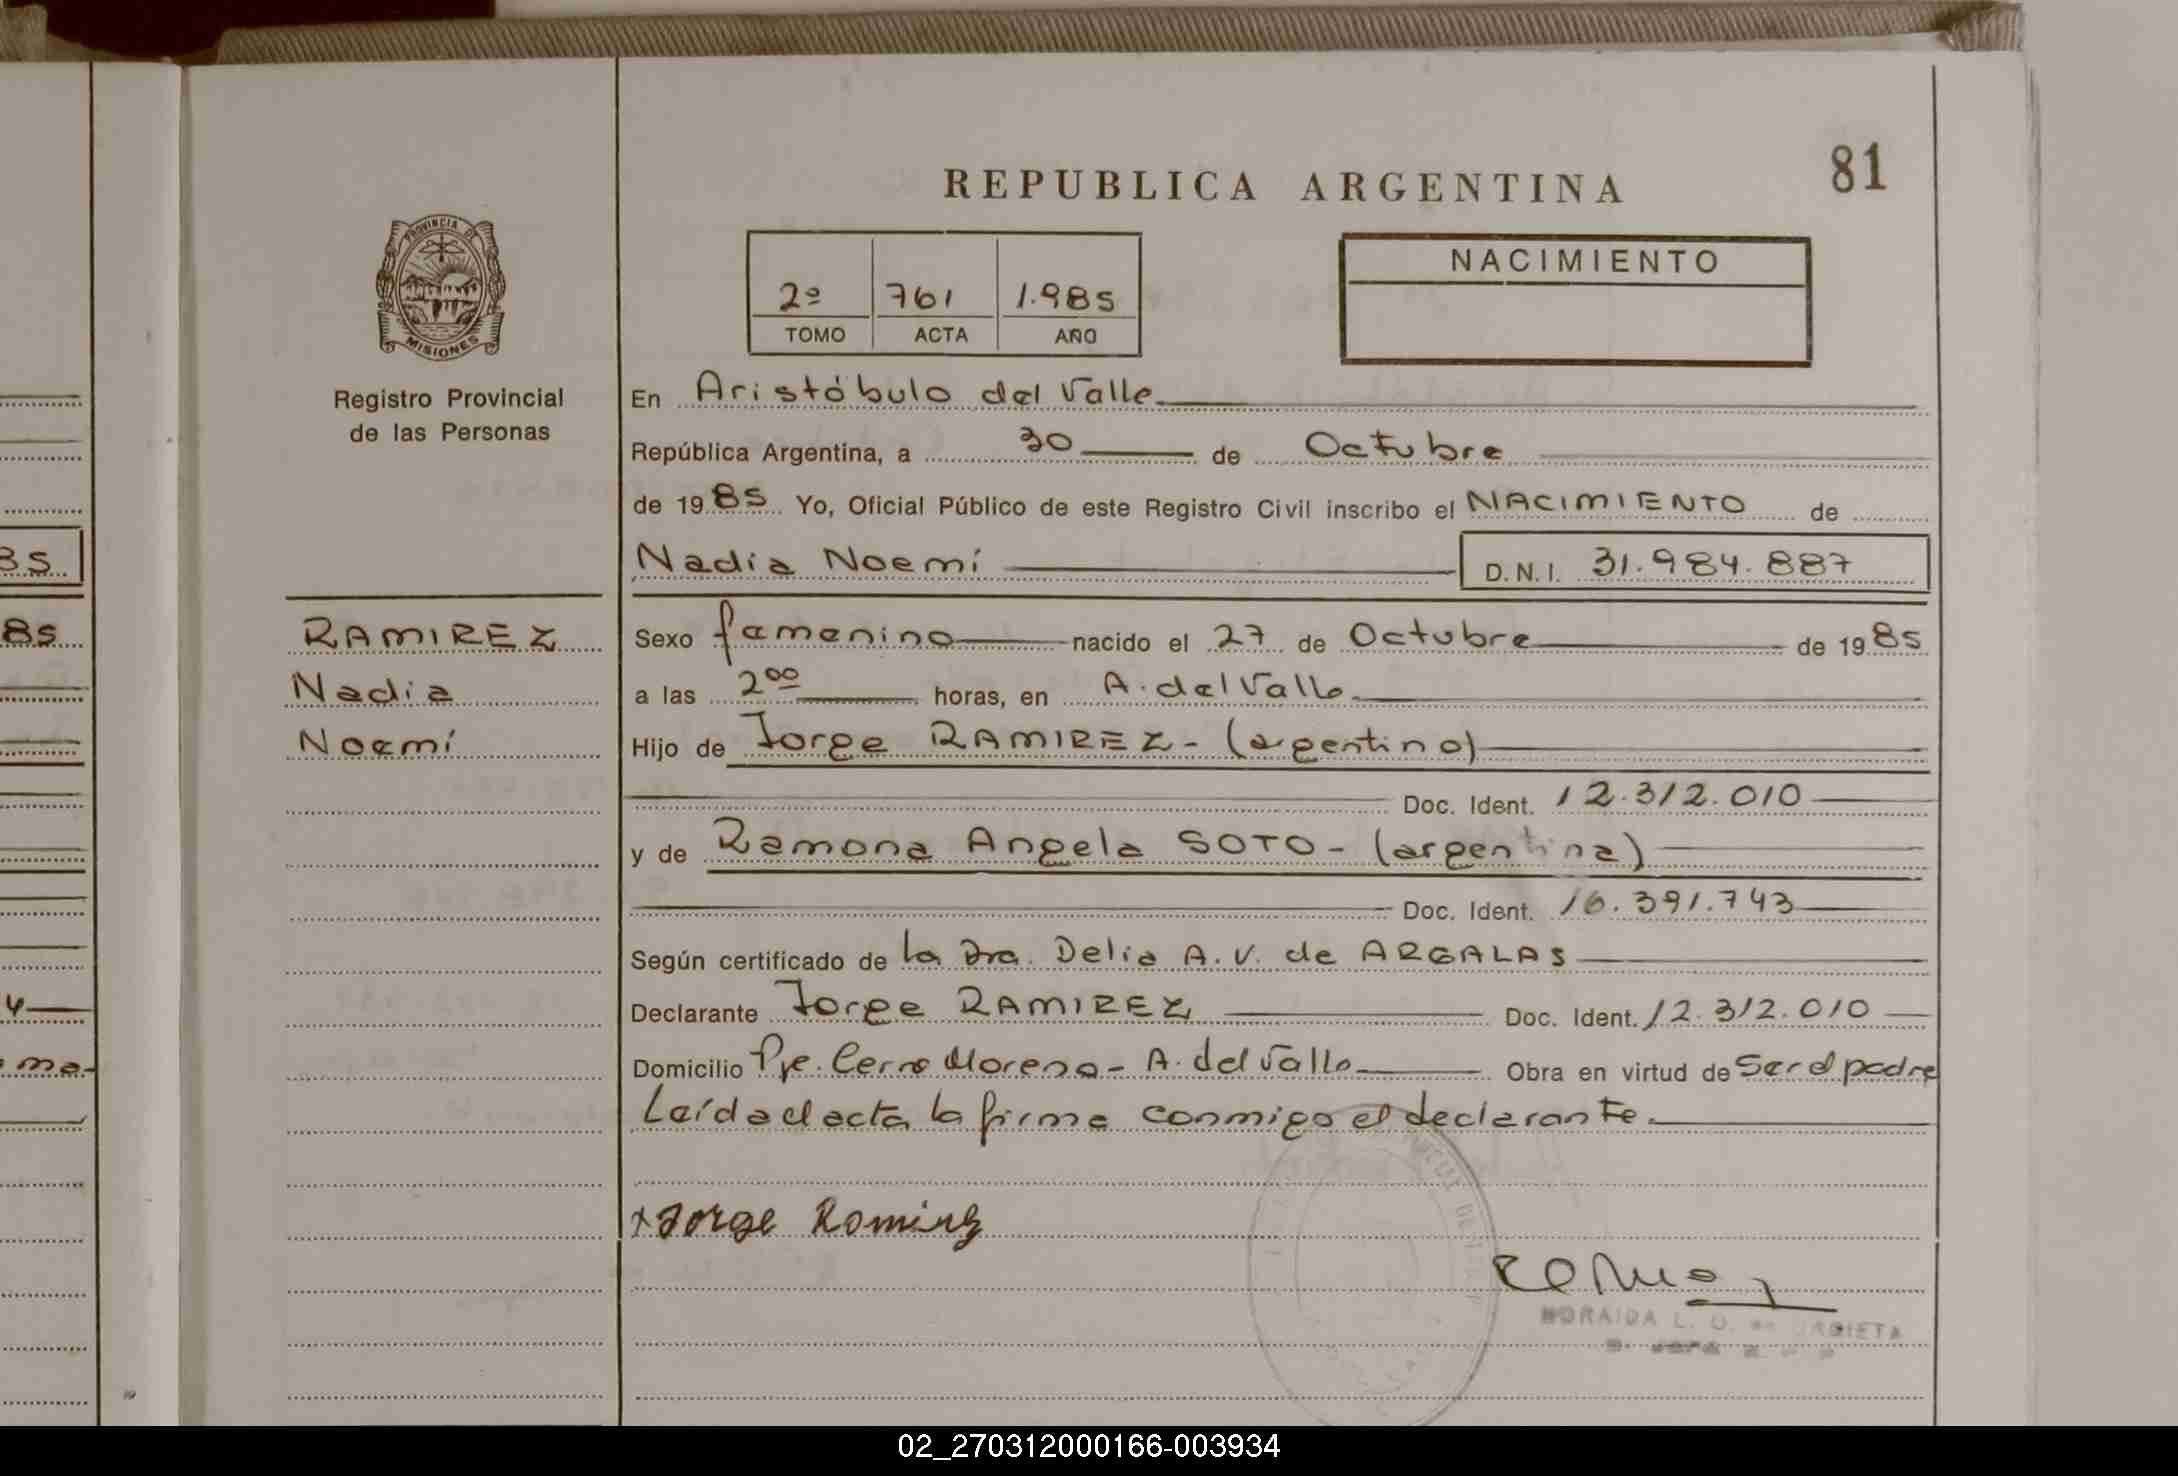 81
REPUBLICA ARGENTINA
PROVINCIA DE
MISIONES
Registro Provincial
de las Personas
2º 761 1.985
TOMO ACTA AÑO
NACIMIENTO
En Aristóbulo del Valle
República Argentina, a 30 de Octubre
de 1985 Yo, Oficial Público de este Registro Civil inscribo el NACIMIENTO de
Nadia Noemí D.N.I. 31.984.887
RAMIREZ
Nadia
Noemí
Sexo femenino nacido el 27 de Octubre de 1985
a las 2⁰⁰ horas, en A. del Valle
Hijo de Jorge RAMIREZ - (argentino)
Doc. Ident. 12.312.010
y de Ramona Angela SOTO - (argentina)
Doc. Ident. 16.391.743
Según certificado de la Dra. Delia A. V. de ARGALAS
Declarante Jorge RAMIREZ Doc. Ident. 12.312.010
Domicilio Pje. Cerro Moreno - A. del Valle Obra en virtud de Ser el padre
Leída el acta la firma conmigo el declarante.
x Jorge Ramirez
85
85
ma-
02_270312000166-003934